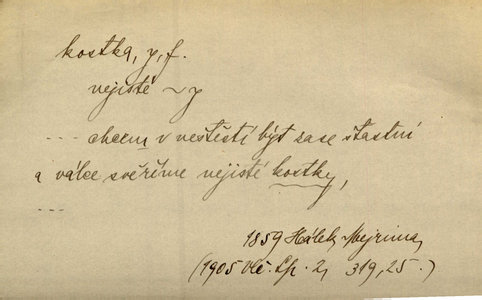 kostka, y, f.
nejisté ~y
--- chcem v neštěstí být zase šťastni
a válce svěříme nejisté kostky,
---
1859 Hálek, Mejrima,
(1905 Vlč. Sp. 2, 319,25.)